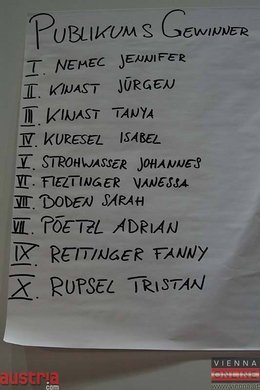 PUBLIKUMS GEWINNER
I. NEMEC JENNIFER
II. KINAST JÜRGEN
III. KINAST TANYA
IV. KURESEL ISABEL
V. STROHWASSER JOHANNES
VI. FIEZTINGER VANESSA
VII. BODEN SARAH
VIII. PÖETZL ADRIAN
IX. REITINGER FANNY
X. RUPSEL TRISTAN
austria.com
VIENNA
ONLINE